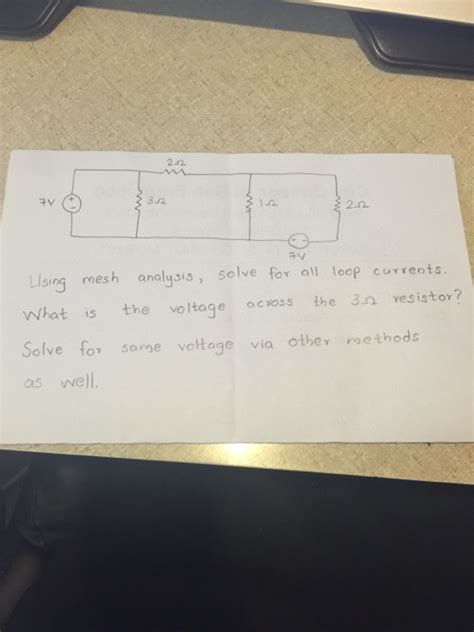 2Ω
7V + - 3Ω 1Ω 2Ω
+ -
7V
Using mesh analysis, solve for all loop currents.
What is the voltage across the 3Ω resistor?
Solve for same voltage via other methods
as well.